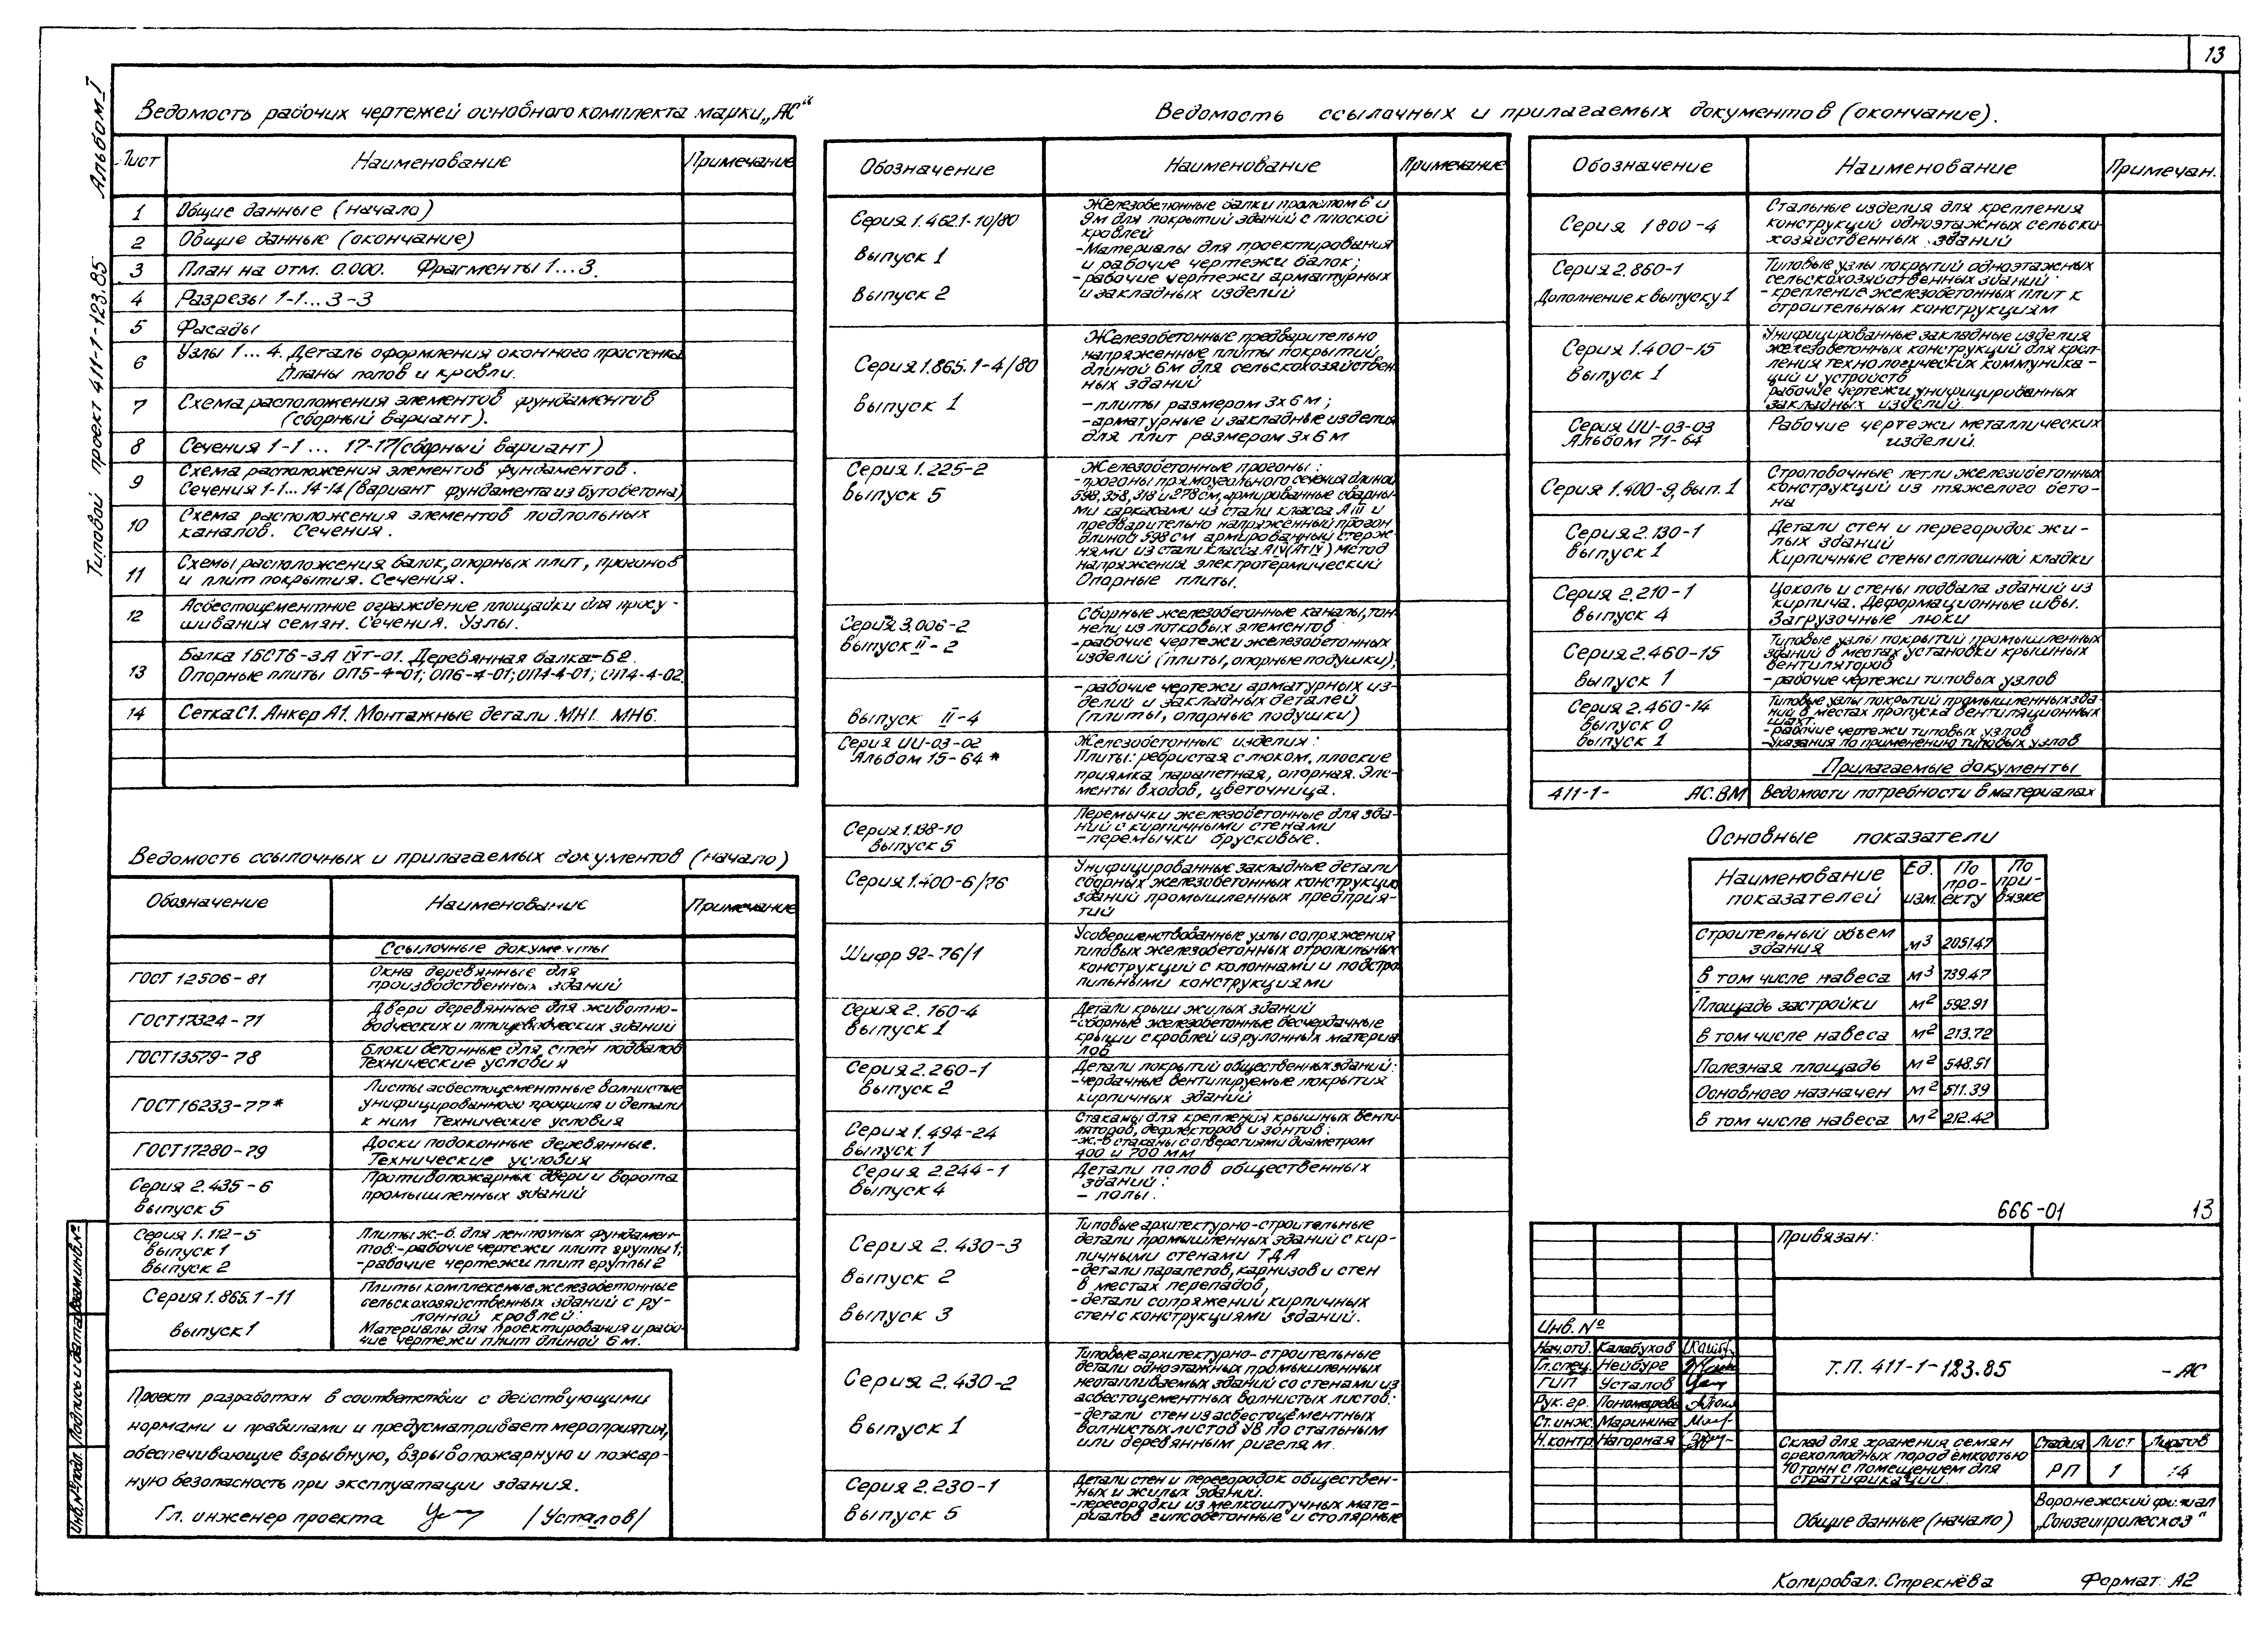 13
Альбом I
Типовой проект 411-1-123.85
Ведомость рабочих чертежей основного комплекта марки „АС“
Лист Наименование Примечание
1 Общие данные (начало)
2 Общие данные (окончание)
3 План на отм. 0.000. Фрагменты 1...3.
4 Разрезы 1-1...3-3
5 Фасады
6 Узлы 1...4. Деталь оформления оконного простенка
Планы полов и кровли.
7 Схема расположения элементов фундаментов
(сборный вариант).
8 Сечения 1-1 ... 17-17 (сборный вариант)
9 Схема расположения элементов фундаментов.
Сечения 1-1...14-14 (вариант фундамента из бутобетона)
10 Схема расположения элементов подпольных
каналов. Сечения.
11 Схемы расположения балок, опорных плит, прогонов
и плит покрытия. Сечения.
12 Асбестоцементное ограждение площадки для просу-
шивания семян. Сечения. Узлы.
13 Балка 1БСТ6-3А IVТ-01. Деревянная балка-Б2.
Опорные плиты ОП5-4-01; ОП6-4-01; ОП4-4-01; ОП4-4-02.
14 Сетка С1. Анкер А1. Монтажные детали МН1. МН6.
Ведомость ссылочных и прилагаемых документов (начало)
Обозначение Наименование Примечание
Ссылочные документы
ГОСТ 12506-81 Окна деревянные для
производственных зданий
ГОСТ 17324-71 Двери деревянные для животно-
водческих и птицеводческих зданий
ГОСТ 13579-78 Блоки бетонные для стен подвалов
Технические условия
ГОСТ 16233-77* Листы асбестоцементные волнистые
унифицированного профиля и детали
к ним Технические условия
ГОСТ 17280-79 Доски подоконные деревянные.
Технические условия
Серия 2.435-6 Противопожарные двери и ворота
промышленных зданий
выпуск 5
Серия 1.112-5 Плиты ж.-б. для ленточных фундамен-
выпуск 1 тов:-рабочие чертежи плит группы 1;
выпуск 2 -рабочие чертежи плит группы 2
Серия 1.865.1-11 Плиты комплексные железобетонные
сельскохозяйственных зданий с ру-
лонной кровлей:
выпуск 1 Материалы для проектирования и рабо-
чие чертежи плит длиной 6 м.
Проект разработан в соответствии с действующими
нормами и правилами и предусматривает мероприятия,
обеспечивающие взрывную, взрывопожарную и пожар-
ную безопасность при эксплуатации здания.
Гл. инженер проекта /Усталов/
Ведомость ссылочных и прилагаемых документов (окончание).
Обозначение Наименование Примечание
Серия 1.462.1-10/80 Железобетонные балки пролетом 6 и
9м для покрытий зданий с плоской
кровлей
выпуск 1 -Материалы для проектирования
и рабочие чертежи балок;
выпуск 2 -рабочие чертежи арматурных
и закладных изделий
Серия 1.865.1-4/80 Железобетонные предварительно
напряженные плиты покрытий,
длиной 6м для сельскохозяйствен-
ных зданий
выпуск 1 -плиты размером 3х6 м;
-арматурные и закладные изделия
для плит размером 3х6 м
Серия 1.225-2 Железобетонные прогоны:
выпуск 5 -прогоны прямоугольного сечения длиной
598, 358, 318 и 278 см, армированные сварны-
ми каркасами из стали класса АIII и
предварительно напряженный прогон
длиной 598 см армированный стерж-
нями из стали класса АIV (АтIV) метод
напряжения электротермический
Опорные плиты.
Серия 3.006-2 Сборные железобетонные каналы, тон-
нели из лотковых элементов
выпуск II-2 -рабочие чертежи железобетонных
изделий (плиты, опорные подушки);
-рабочие чертежи арматурных из-
делий и закладных деталей
выпуск II-4 (плиты, опорные подушки)
Серия ИИ-03-02 Железобетонные изделия:
Альбом 15-64* Плиты: ребристая с люком, плоские
приямка парапетная, опорная. Эле-
менты входов, цветочница.
Серия 1.138-10 Перемычки железобетонные для зда-
ний с кирпичными стенами
выпуск 5 -перемычки брусковые.
Серия 1.400-6/76 Унифицированные закладные детали
сборных железобетонных конструкций
зданий промышленных предприя-
тий
Шифр 92-76/1 Усовершенствованные узлы сопряжения
типовых железобетонных стропильных
конструкций с колоннами и подстро-
пильными конструкциями
Серия 2.160-4 Детали крыш жилых зданий
выпуск 1 -сборные железобетонные бесчердачные
крыши с кровлей из рулонных материа-
лов
Серия 2.260-1 Детали покрытий общественных зданий:
выпуск 2 -чердачные вентилируемые покрытия
кирпичных зданий
Серия 1.494-24 Стаканы для крепления крышных венти-
ляторов, дефлекторов и зонтов:
выпуск 1 -ж.-б стаканы с отверстиями диаметром
400 и 700 мм
Серия 2.244-1 Детали полов общественных
выпуск 4 зданий:
- полы.
Серия 2.430-3 Типовые архитектурно-строительные
детали промышленных зданий с кир-
пичными стенами ТДА
выпуск 2 -детали парапетов, карнизов и стен
в местах перепадов,
выпуск 3 -детали сопряжений кирпичных
стен с конструкциями зданий.
Серия 2.430-2 Типовые архитектурно-строительные
детали одноэтажных промышленных
неотапливаемых зданий со стенами из
асбестоцементных волнистых листов:
выпуск 1 -детали стен из асбестоцементных
волнистых листов УВ по стальным
или деревянным ригелям.
Серия 2.230-1 Детали стен и перегородок обществен-
ных и жилых зданий.
выпуск 5 -перегородки из мелкоштучных мате-
риалов гипсобетонные и столярные
Обозначение Наименование Примечан.
Серия 1 800-4 Стальные изделия для крепления
конструкций одноэтажных сельско-
хозяйственных зданий
Серия 2.860-1 Типовые узлы покрытий одноэтажных
сельскохозяйственных зданий:
Дополнение к выпуску 1 -крепление железобетонных плит к
строительным конструкциям
Серия 1.400-15 Унифицированные закладные изделия
железобетонных конструкций для креп-
выпуск 1 ления технологических коммуника-
ций и устройств
рабочие чертежи унифицированных
закладных изделий.
Серия ИИ-03-03 Рабочие чертежи металлических
Альбом 71-64 изделий.
Серия 1.400-9, вып. 1 Строповочные петли железобетонных
конструкций из тяжелого бето-
на
Серия 2.130-1 Детали стен и перегородок жи-
выпуск 1 лых зданий
Кирпичные стены сплошной кладки
Серия 2.210-1 Цоколь и стены подвала зданий из
выпуск 4 кирпича. Деформационные швы.
Загрузочные люки
Серия 2.460-15 Типовые узлы покрытий промышленных
зданий в местах установки крышных
вентиляторов
выпуск 1 -рабочие чертежи типовых узлов
Серия 2.460-14 Типовые узлы покрытий промышленных зда-
выпуск 0 ний в местах пропуска вентиляционных
шахт.
выпуск 1 -рабочие чертежи типовых узлов
-Указания по применению типовых узлов
Прилагаемые документы
411-1- АС.ВМ Ведомости потребности в материалах
Основные показатели
Наименование показателей Ед. изм. По про-екту По при-вязке
Строительный объем
здания м3 2051.47
В том числе навеса м3 739.47
Площадь застройки м2 592.91
В том числе навеса м2 213.72
Полезная площадь м2 548.51
Основного назначен м2 511.39
В том числе навеса м2 212.42
666-01 13
Привязан:
Инв. №
Нач.отд. Калабухов
Гл.спец. Нейбурге
ГИП Усталов
Рук.гр. Пономарева
Ст.инж. Маринина
Н.контр Нагорная
Т.П. 411-1-123.85 -АС
Склад для хранения семян
орехоплодных пород емкостью
40 тонн с помещением для
стратификации.
Стадия Лист Листов
РП 1 14
Общие данные (начало)
Воронежский филиал
„Союзгипролесхоз“
Взам.инв.№
Подпись и дата
Инв.№ подл.
Копировал: Стрекнёва Формат: А2